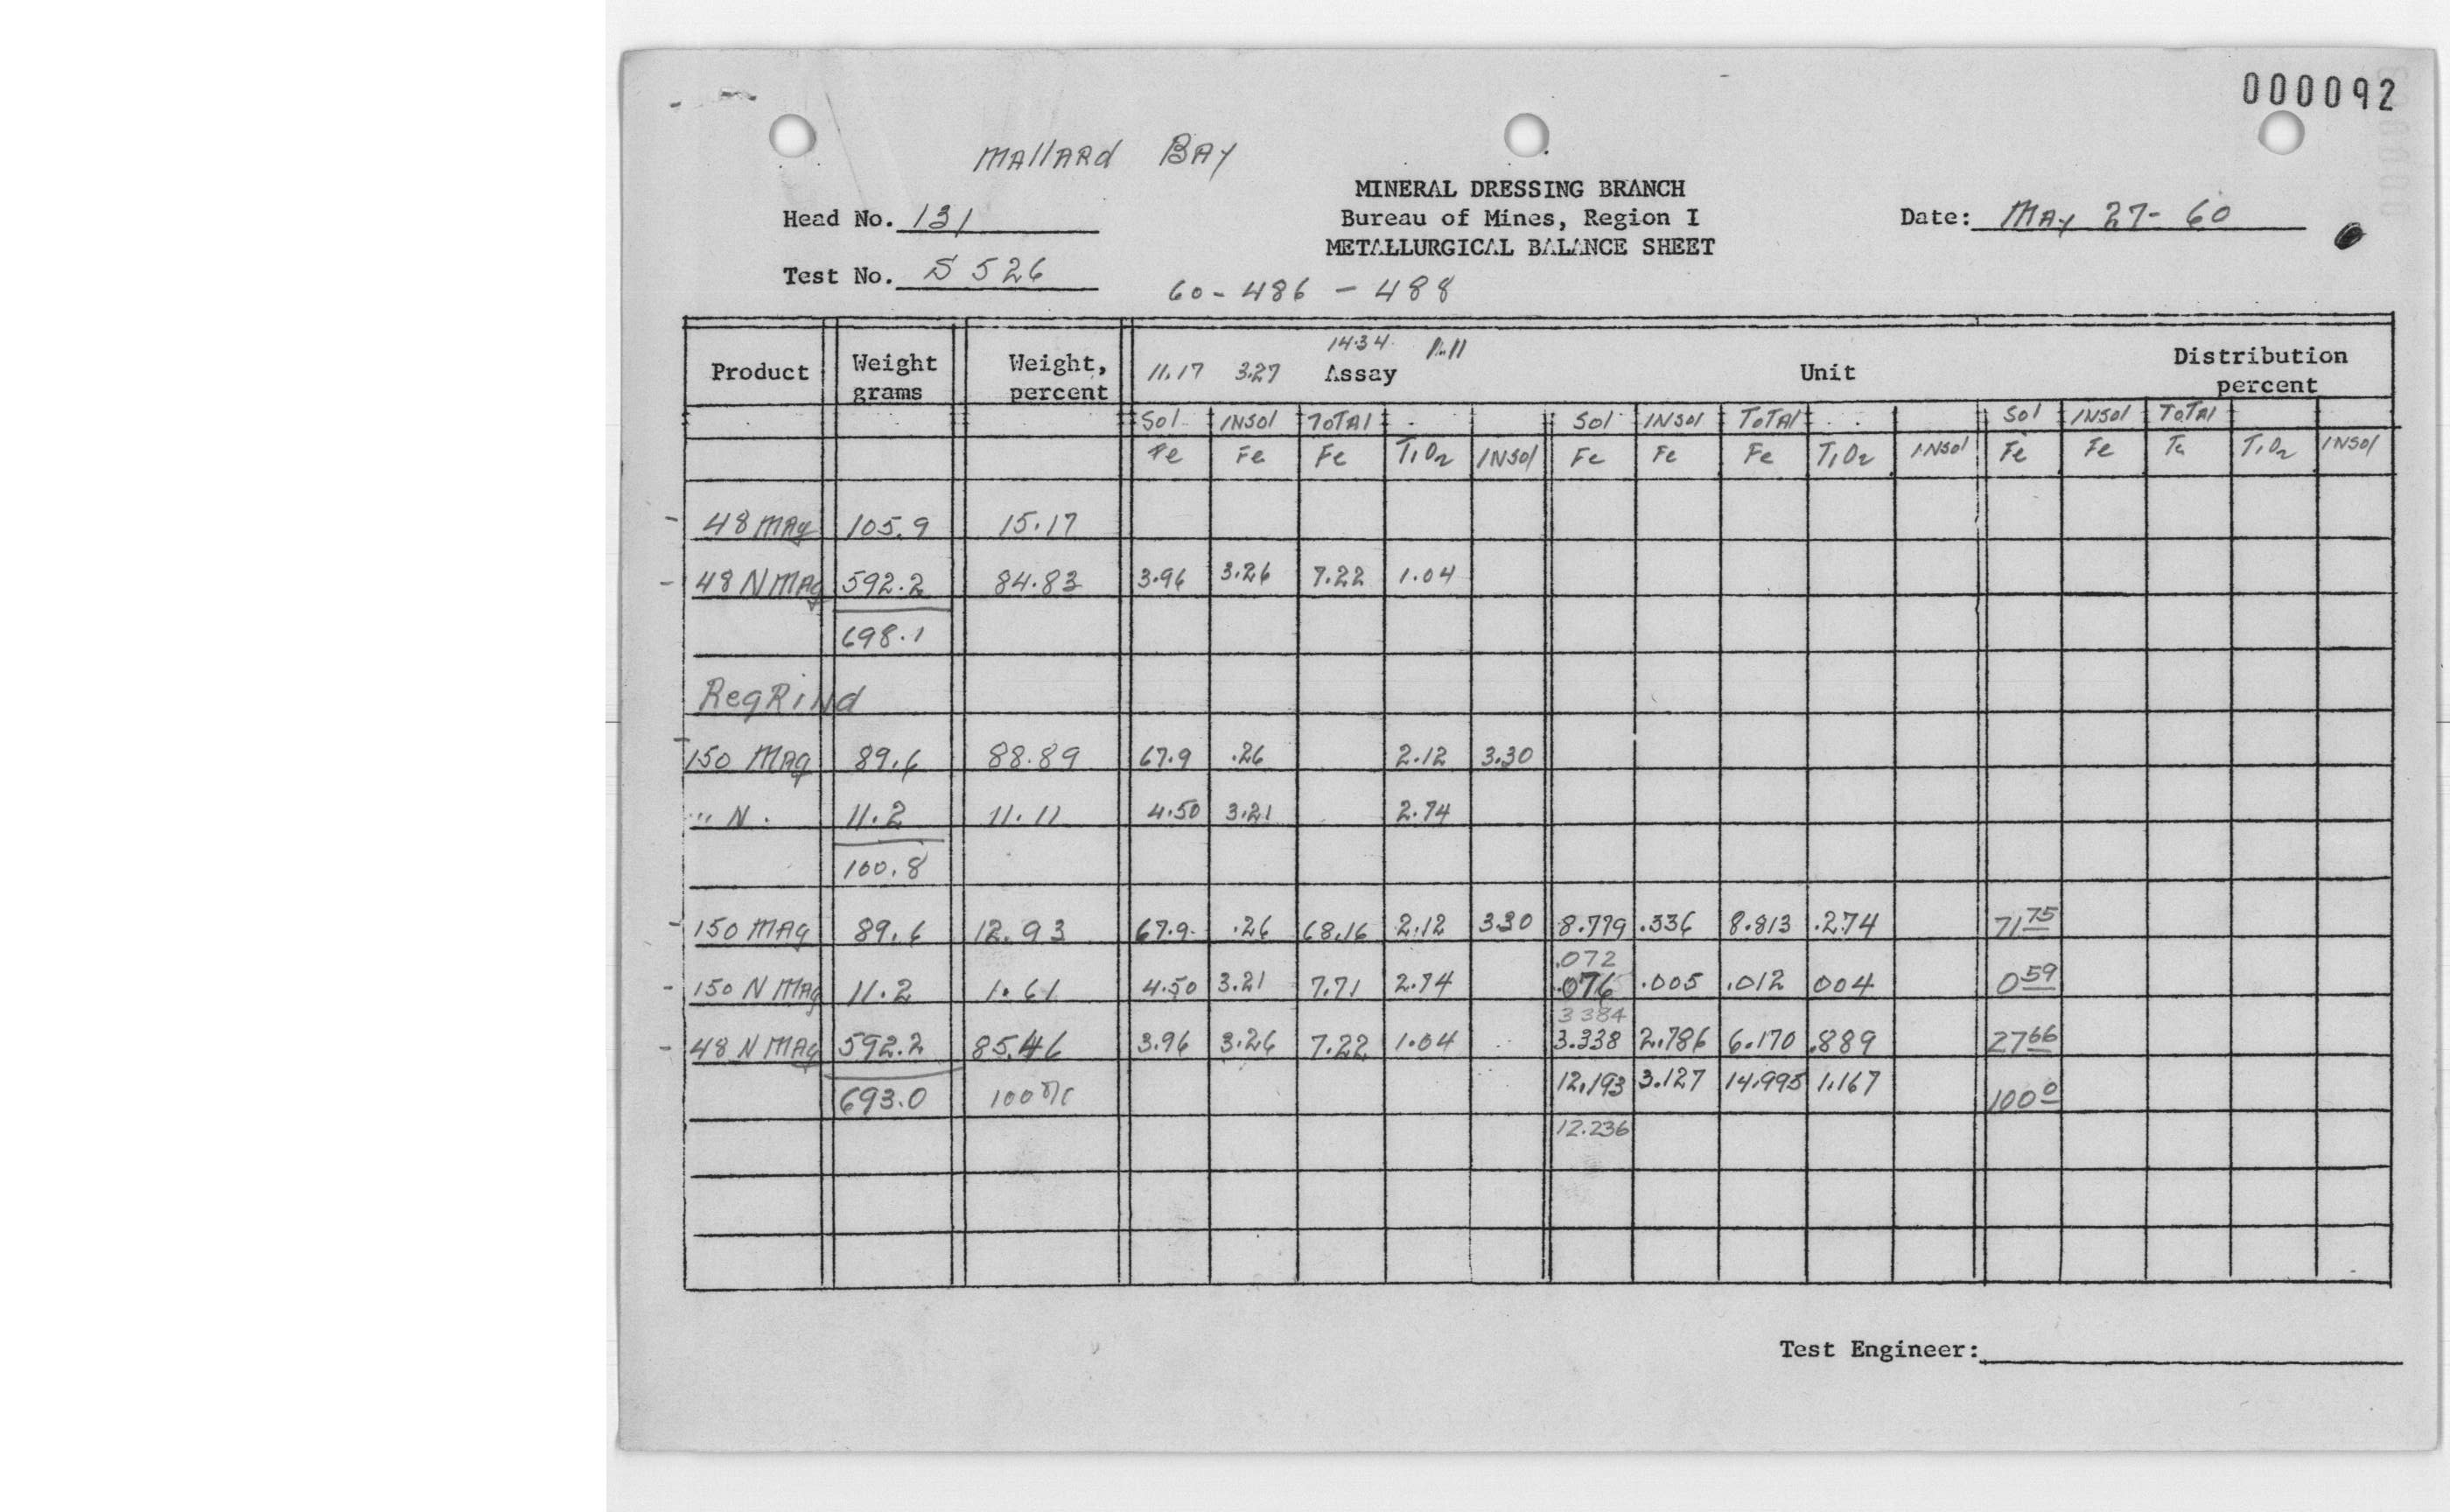 000092
Mallard Bay
MINERAL DRESSING BRANCH
Head No. 131 Bureau of Mines, Region I Date: May 27-60
METALLURGICAL BALANCE SHEET
Test No. S 526
60-486-488
14.34
Product Weight grams Weight, percent 11.17 3.27 Assay Unit Distribution percent
Sol INSOl TOTAl Sol INSOl TOTAl Sol INSOl TOTAl
Fe Fe Fe TiO2 INSOl Fe Fe Fe TiO2 INSOl Fe Fe Fe TiO2 INSOl
- 48 MAg 105.9 15.17
- 48 N MAg 592.2 84.83 3.96 3.26 7.22 1.04
698.1
RegRiNd
- 150 MAg 89.6 88.89 67.9 .26 2.12 3.30
" N. 11.2 11.11 4.50 3.21 2.74
100.8
- 150 MAg 89.6 12.93 67.9 .26 68.16 2.12 3.30 8.779 .336 8.813 .274 71 75
.072
- 150 N MAg 11.2 1.61 4.50 3.21 7.71 2.74 .076 .005 .012 004 0 59
3 384
- 48 N MAg 592.2 85.46 3.96 3.26 7.22 1.04 3.338 2.786 6.170 .889 27 66
12,193 3.127 14.995 1.167
693.0 100 100 0
12.236
Test Engineer: